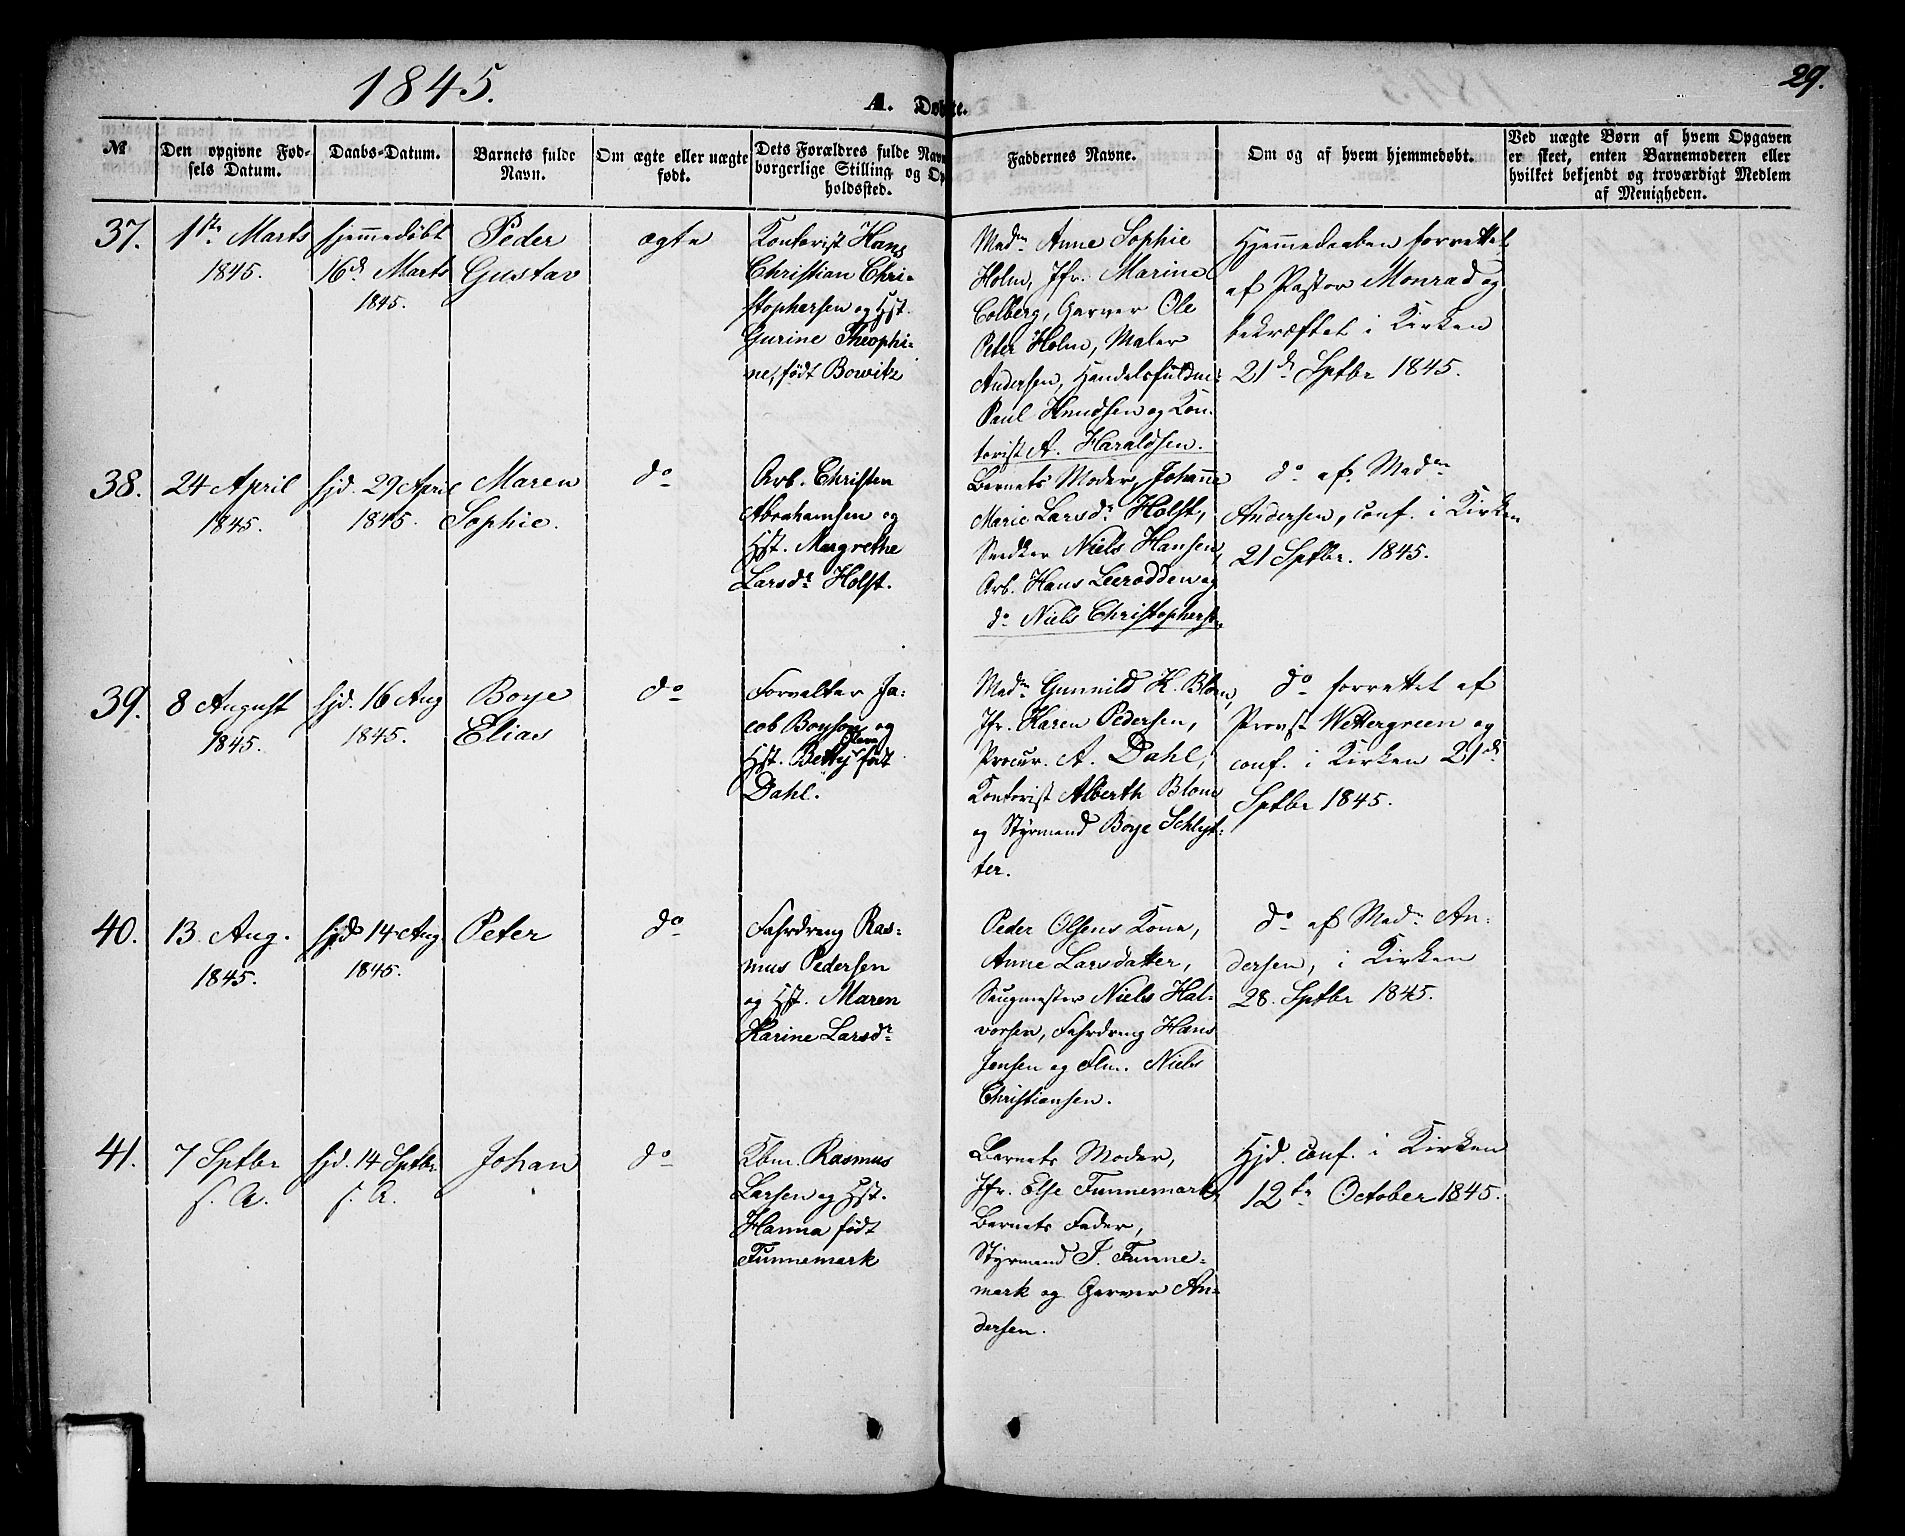 1845.
A. Døbte.
29.
№
Den opgivne Fød-
sels Datum.
Daabs-Datum.
Barnets fulde
Navn.
Om ægte eller uægte
født.
Dets Forældres fulde Navn
borgerlige Stilling og Op
holdssted.
Faddernes Navne.
Om og af hvem hjemmedøbt.
Ved uægte Børn af hvem Opgaven
er skeet, enten Barnemoderen eller
hvilket bekjendt og troværdigt Medlem
af Menigheden.
37.
1ste Marts
1845.
hjemmedøbt
16d Marts
1845.
Peder
Gustav
ægte
Kontorist Hans
Christian Chri-
stophersen og Hst.
Gurine Theophi-
ne, født Bowitz
Madm Anne Sophie
Holm, Jfr. Marine
Colberg, Garver Ole
Peter Holm, Maler
Andersen, Handelsfuldm:
Paul Knudsen og Kon-
torist A. Haraldsen.
Hjemmedaaben forrettet
af Pastor Monrad og
bekræftet i Kirken
21d Septbr 1845.
38.
24 April
1845.
hjd. 29 April
1845.
Maren
Sophie.
do
Arb. Christen
Abrahamsen og
Hst. Margrethe
Larsdr Holst.
Barnets Moder, Johanne
Marie Larsdr Holst,
Snedker Niels Hansen,
Arb. Hans Leerodden og
do Niels Christophersen
do af Madm
Andersen, conf. i Kirken
21 Septbr. 1845.
39.
8 August
1845.
hjd. 16 Aug
1845.
Boye
Elias
do
Forvalter Ja-
cob Boysen og
Hst. Betty født
Dahl.
Madm Gunnild K. Blom,
Jfr. Karen Pedersen,
Procur. A. Dahl,
Kontorist Alberth Blom
og Styrmand Boye Schlyt-
ter.
do forrettet af
Provst Wettergreen og
conf. i Kirken 21de
Septbr 1845.
40.
13. Aug.
1845.
hjd 14 Aug.
1845.
Peter
do
Fahrdreng Ras-
mus Pedersen
og Hst. Maren
Karine Larsdr
Peder Olsens Kone,
Anne Larsdatter,
Saugmester Niels Hal-
vorsen, Fahrdreng Hans
Jensen og Flm. Niels
Christiansen.
do af Madm An-
dersen, i Kirken
28. Septbr 1845.
41.
7 Septbr
s. A.
hjd. 14 Septbr
s. A.
Johan
do
Kbm. Rasmus
Larsen og Hst.
Hanna født
Funnemark
Barnets Moder,
Jfr. Else Funnemark,
Barnets Fader,
Styrmand J. Funne-
mark og Garver An-
dersen.
Hjd. conf. i Kirken
12te October 1845.